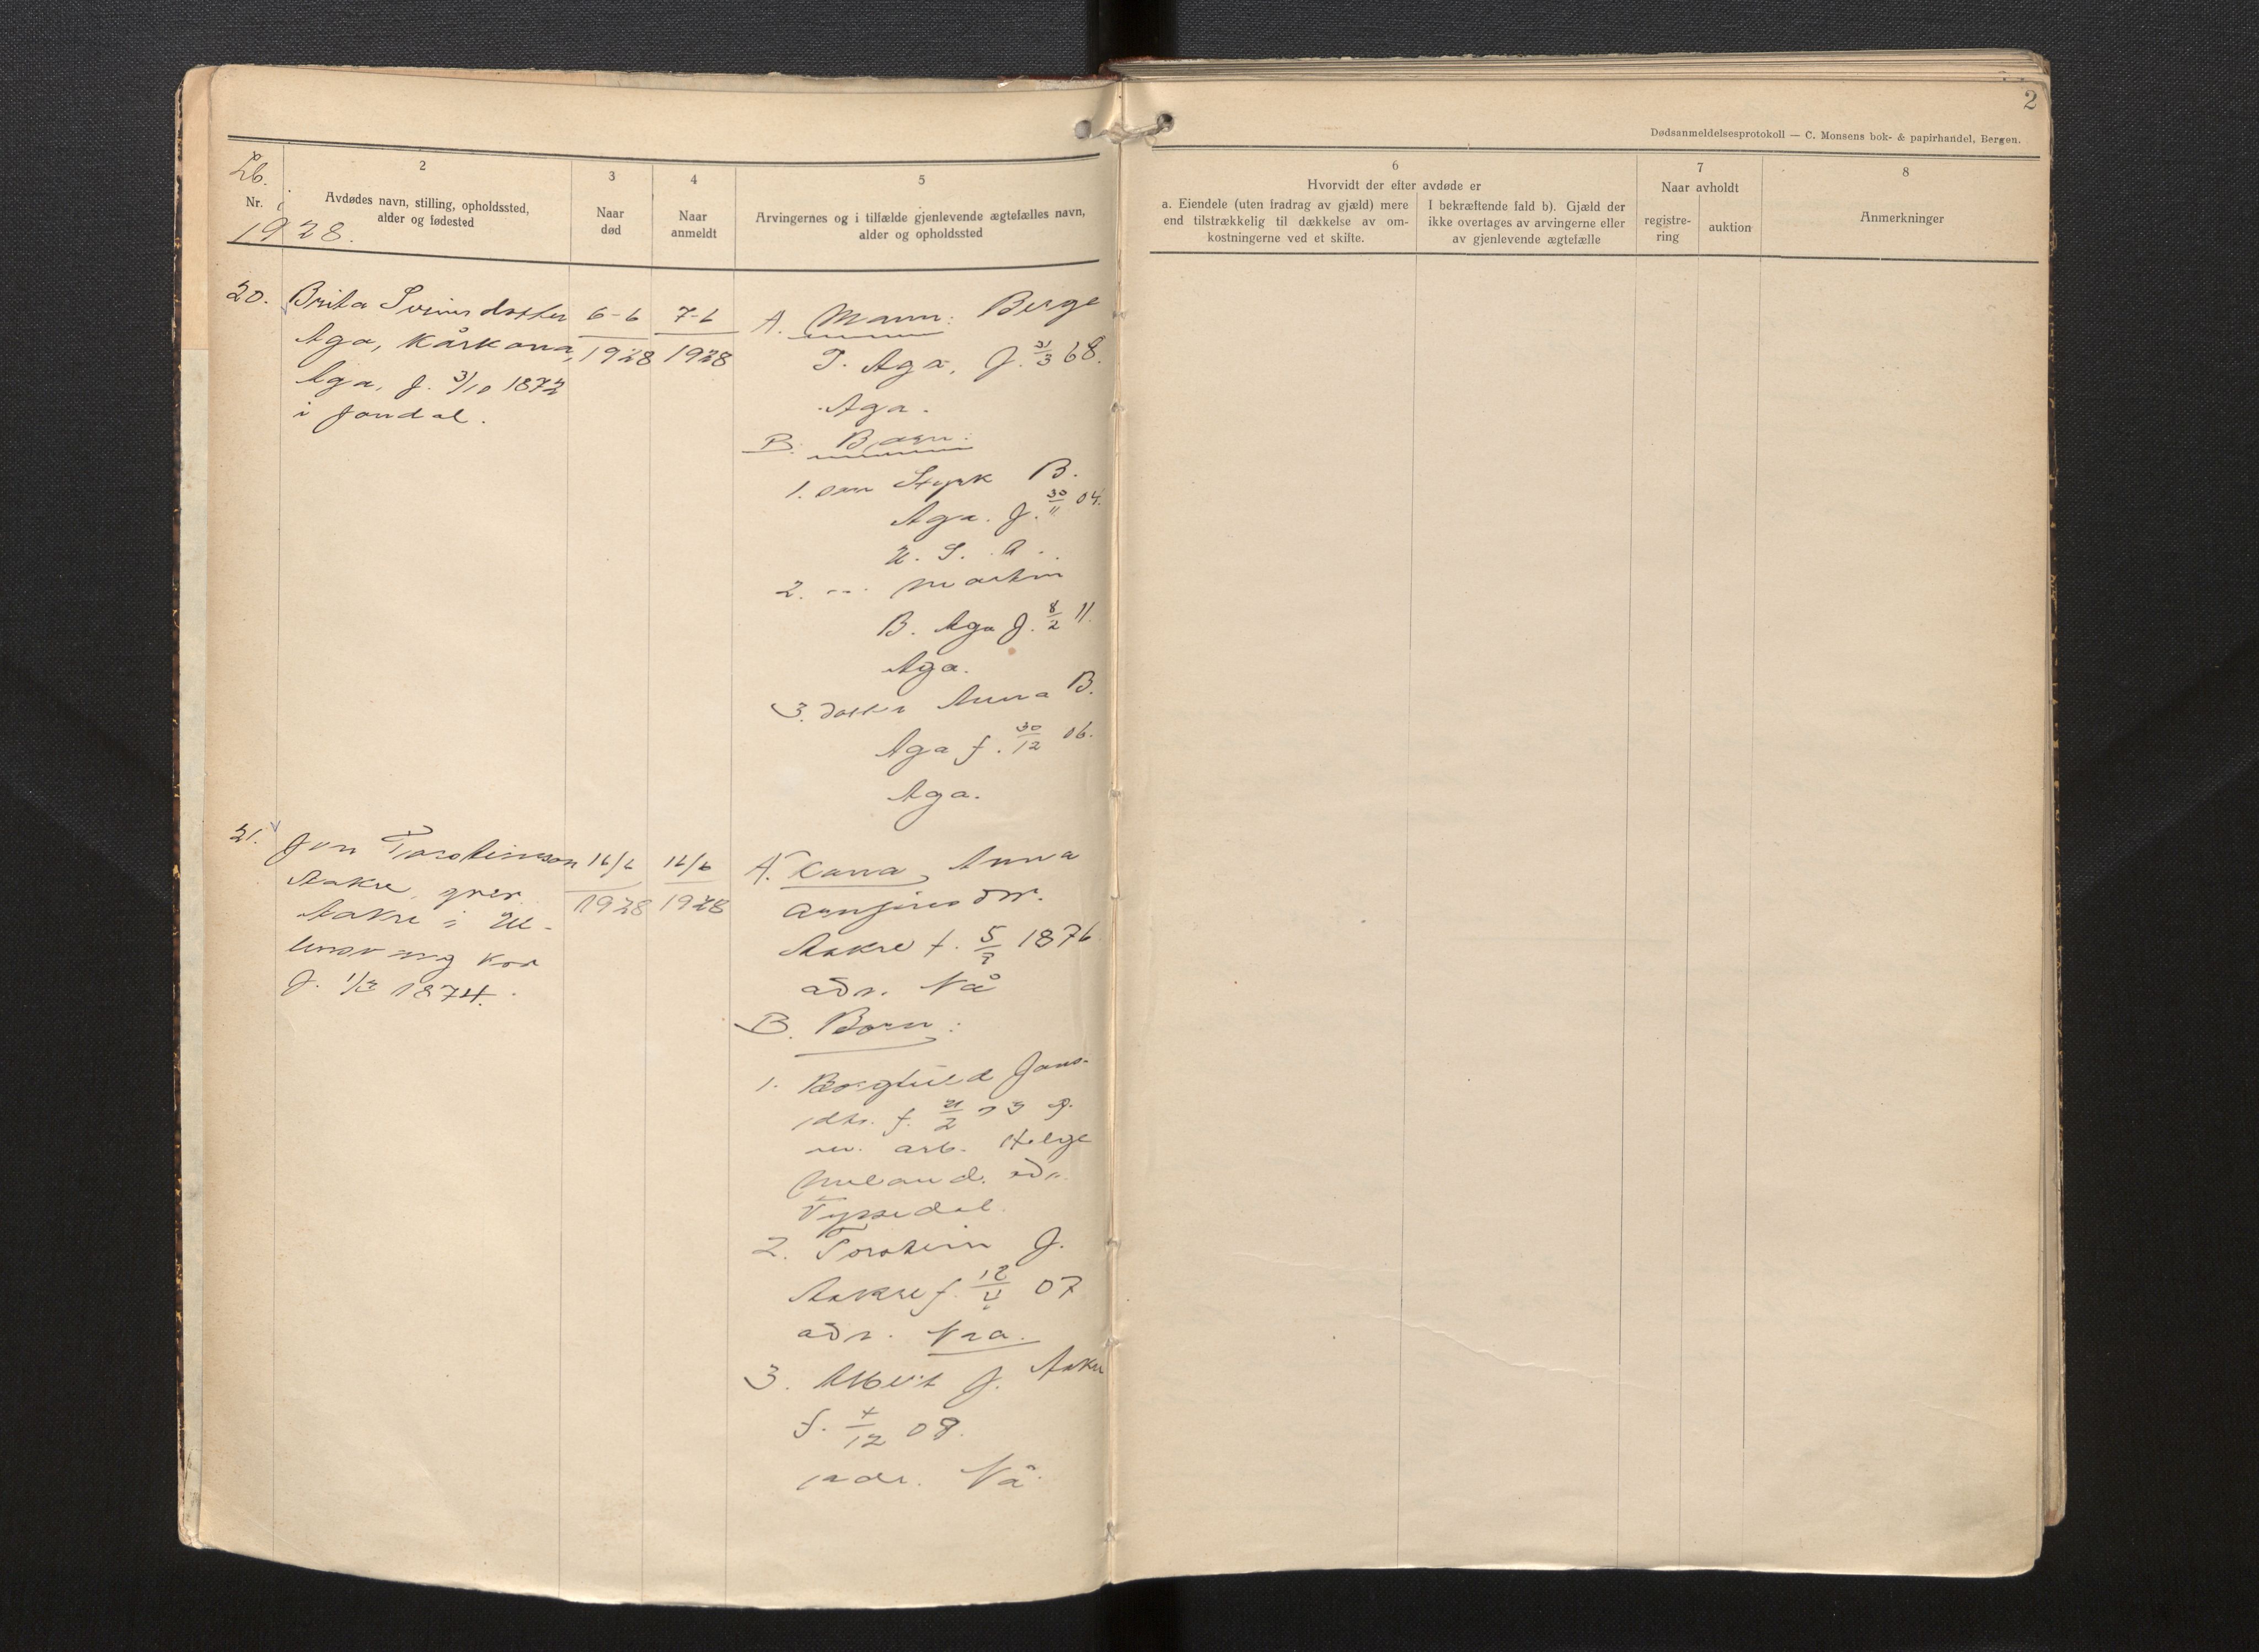 2
Dødsanmeldelsesprotokoll — C. Monsens bok- & papirhandel, Bergen.
Lb.
Nr. i
1928.
2
Avdødes navn, stilling, opholdssted,
alder og fødested
3
Naar
død
4
Naar
anmeldt
5
Arvingernes og i tilfælde gjenlevende ægtefælles navn,
alder og opholdssted
6
Hvorvidt der efter avdøde er
a. Eiendele (uten fradrag av gjæld) mere
end tilstrækkelig til dækkelse av om-
kostningerne ved et skifte.
I bekræftende fald b). Gjæld der
ikke overtages av arvingerne eller
av gjenlevende ægtefælle
7
Naar avholdt
registre-
ring
auktion
8
Anmerkninger
20.
Brita
Aga, Kårkona,
Aga, f. 3/10 1872
i Jondal.
6-6
1928
7-6
1928
A. Mann: Berge
T. Aga, f. 3 68.
Aga.
B. Born:
1. son Styrk B.
Aga. f. 30/11 04.
U. S. A.
2. -- Martin
B. Aga f. 8/2 11.
Aga.
3. dotter Anna B.
Aga f. 30/12 06.
Aga.
21.
Jon Torsteinson
Aakre,
Aakre i Ul-
lensvang
f. 1/3 1874.
16/6
1928
16/6
1928
A. Kona, Anna
Aakre f. 5 1876
adr. Nå
B. Born:
1. Borghild Jons-
dtr. f. 21/2 g.
m. arb. Helge
Meland. adr.
Tyssedal.
2. Torstein J.
Aakre f. 12 07
adr. Naa.
3. Albert J. Aakre
f. 4/12 08.
adr. Nå.